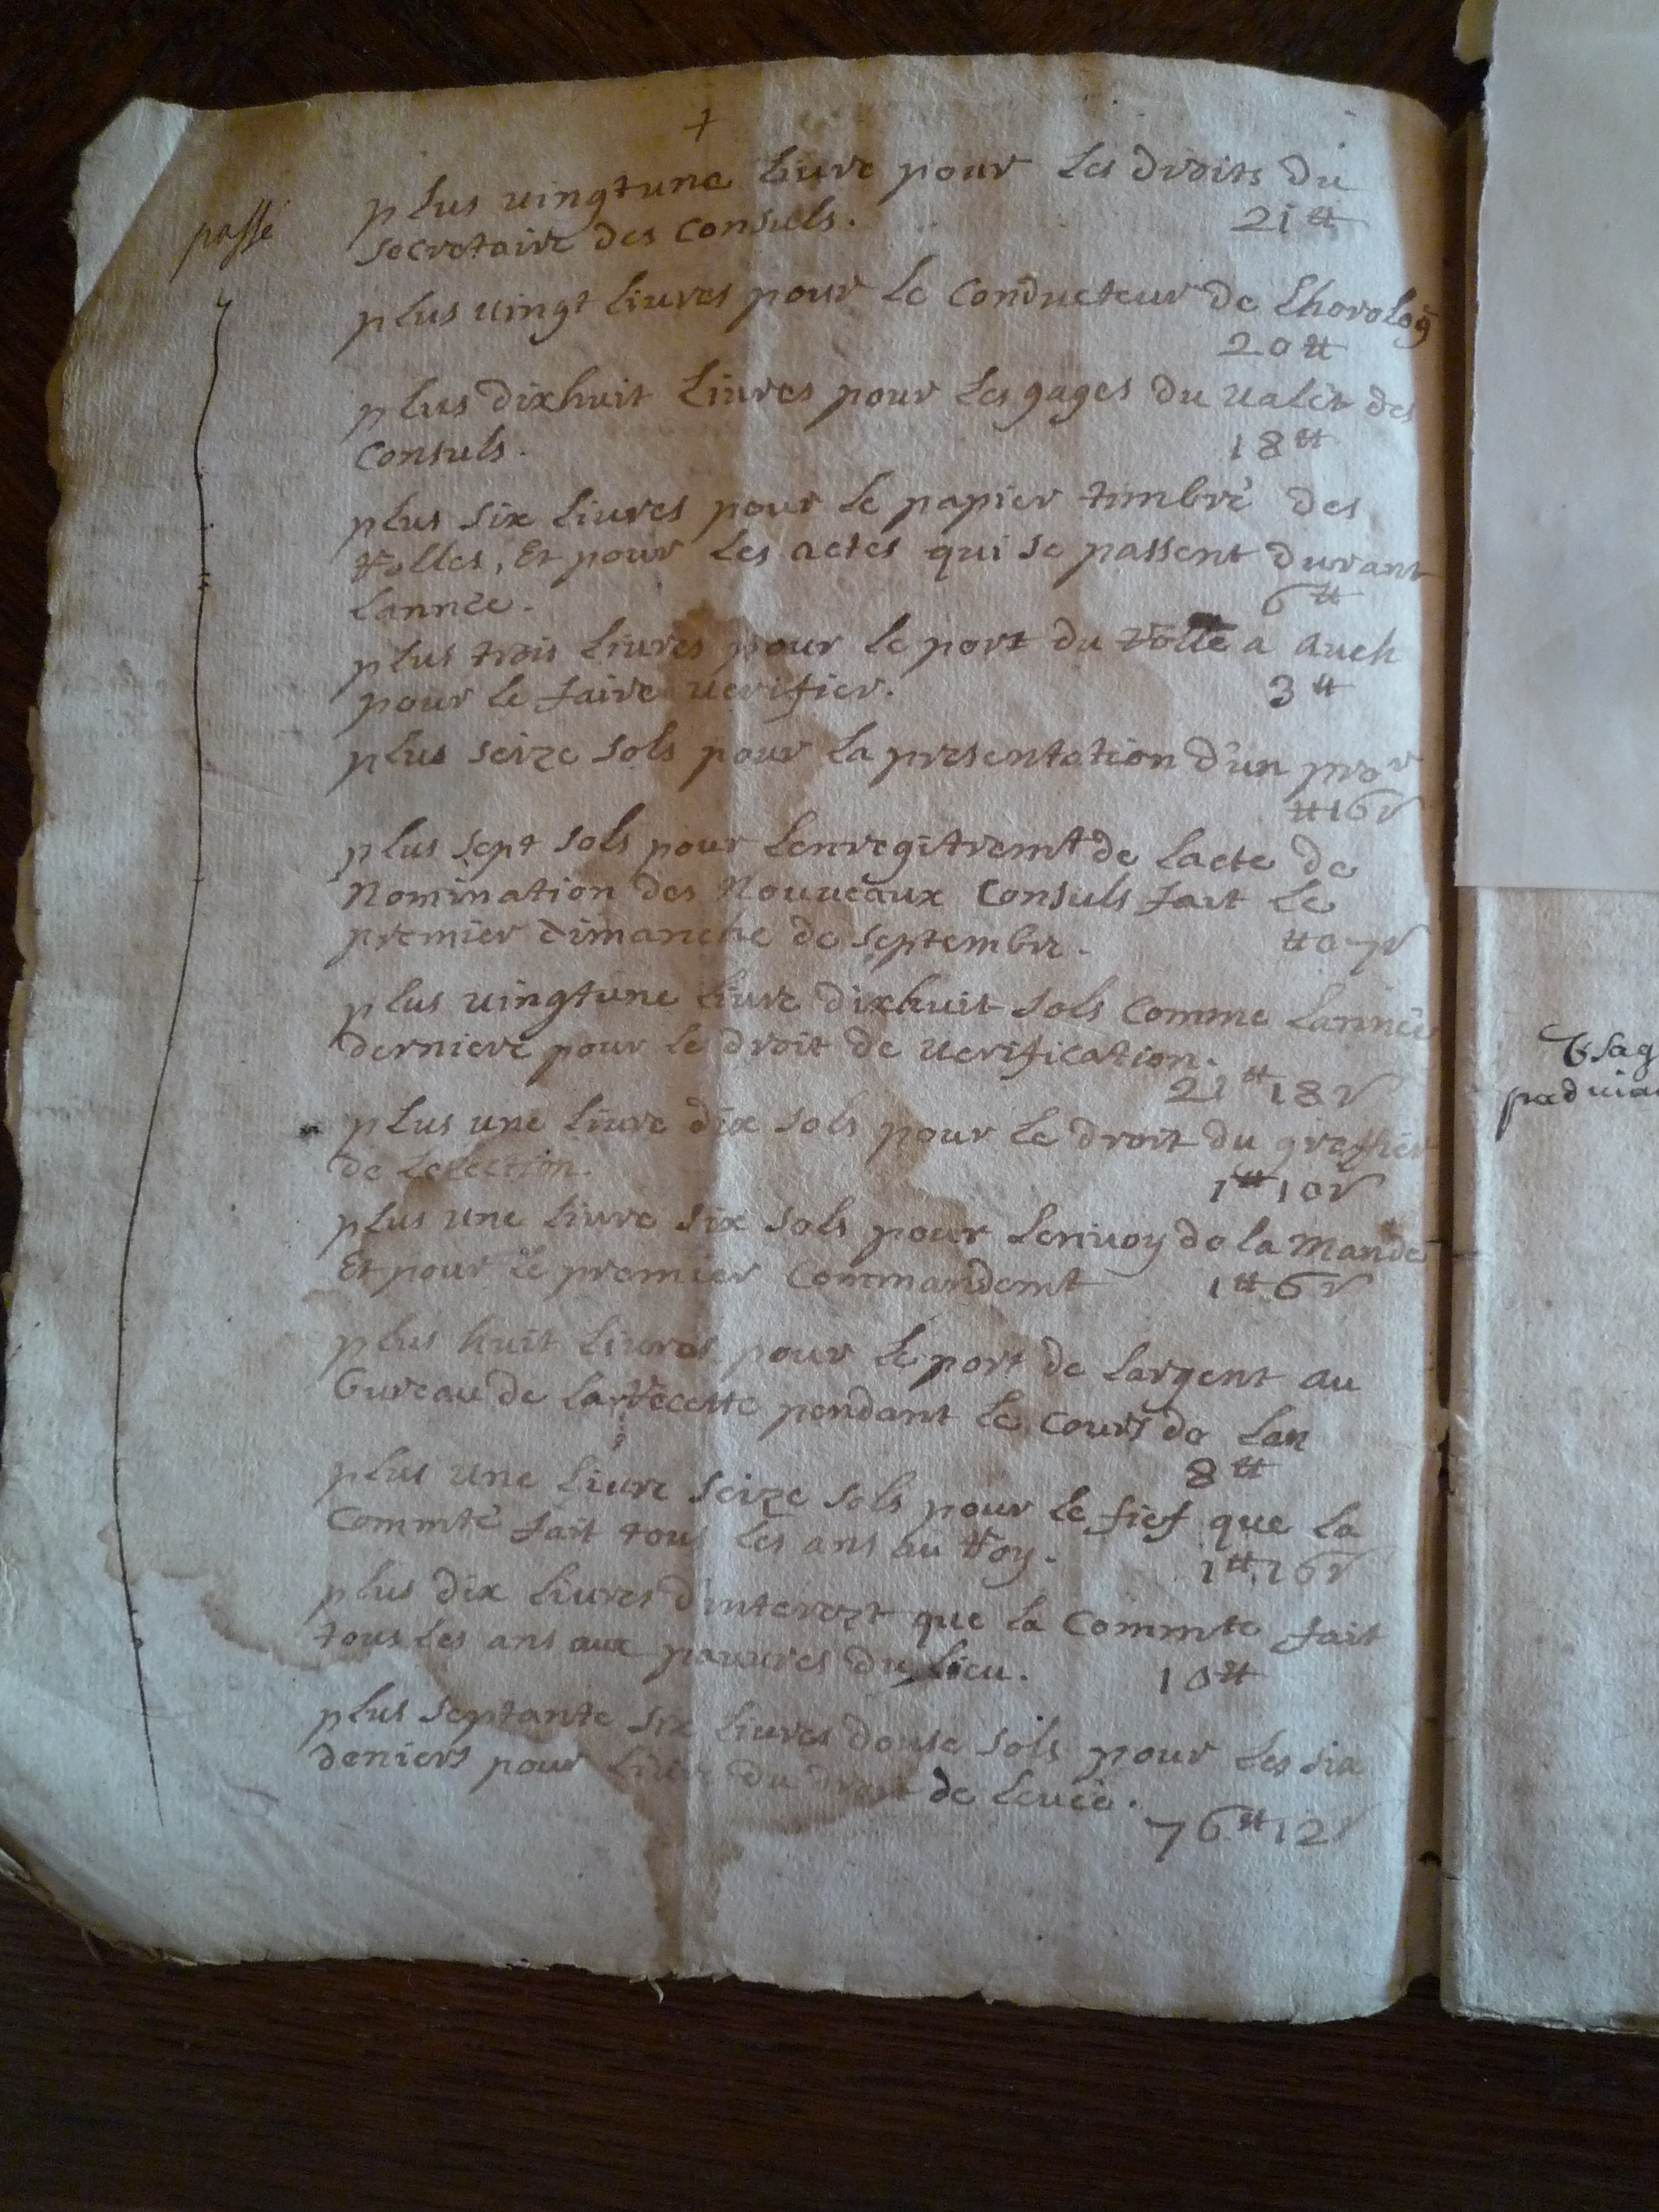 +
passé
plus uingtune liure pour les droits du
secretaire des consuls. 21 ₶
plus uingt liures pour le conducteur de lhorolog
20 ₶
plus dixhuit liures pour les gages du ualet des
consuls. 18 ₶
plus six liures pour le papier timbré des
rolles, Et pour les actes qui se passent durant
lannée. 6 ₶
plus trois liures pour le port du rolle a auch
pour le faire uerifier. 3 ₶
plus seize sols pour la presentation d'un pror
₶ 16 s
plus sept sols pour lenregitremt de lacte de
Nomination des Nouueaux consuls fait le
premier dimanche de septembre. ₶ 0 7 s
plus uingtune liure dixhuit sols comme lannée
derniere pour le droit de uerification.
21 ₶ 18 s
plus une liure dix sols pour le droit du greffier
de lelection. 1 ₶ 10 s
plus une liure six sols pour lenuoy de la mande
Et pour le premier commandemt 1 ₶ 6 s
plus huit liures pour le port de largent au
bureau de la recette pendant le cours de lan
8 ₶
plus une liure seize sols pour le fief que la
commté fait tous les ans au roy. 1 ₶ 16 s
plus dix liures d'interezt que la commte fait
tous les ans aux pauures du lieu. 10 ₶
plus septante six liures douse sols pour les six
deniers pour liure du droit de leuée.
76 ₶ 12 s